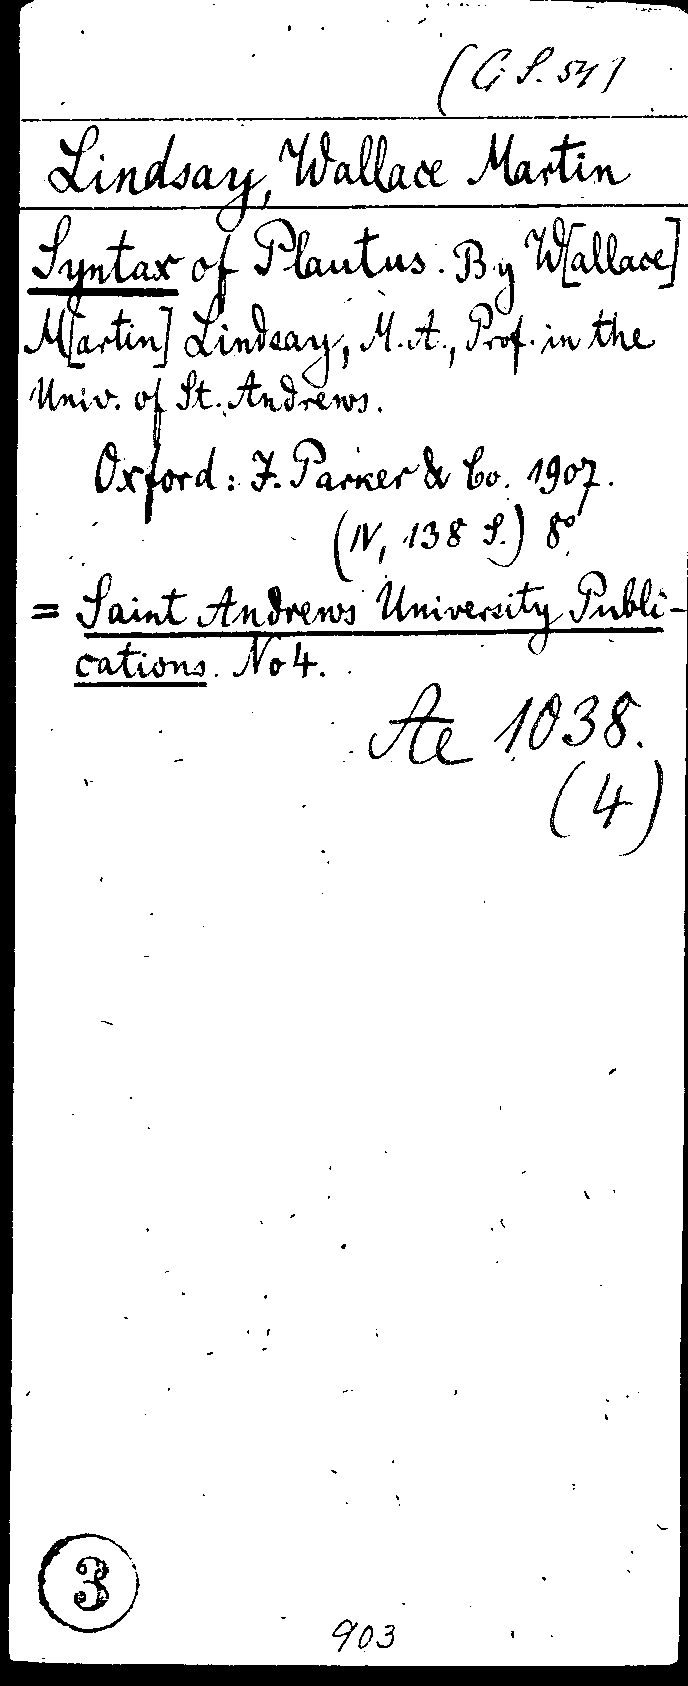 (G S. 54)
Lindsay, Wallace Martin
Syntax of Plautus. By W[allace]
M[artin] Lindsay, M.A., Prof. in the
Univ. of St. Andrews.
Oxford: J. Parker & Co. 1907.
(IV, 138 S.) 8°.
= Saint Andrews University Publi-
cations. No 4.
Ae 1038.
(4)
3
903